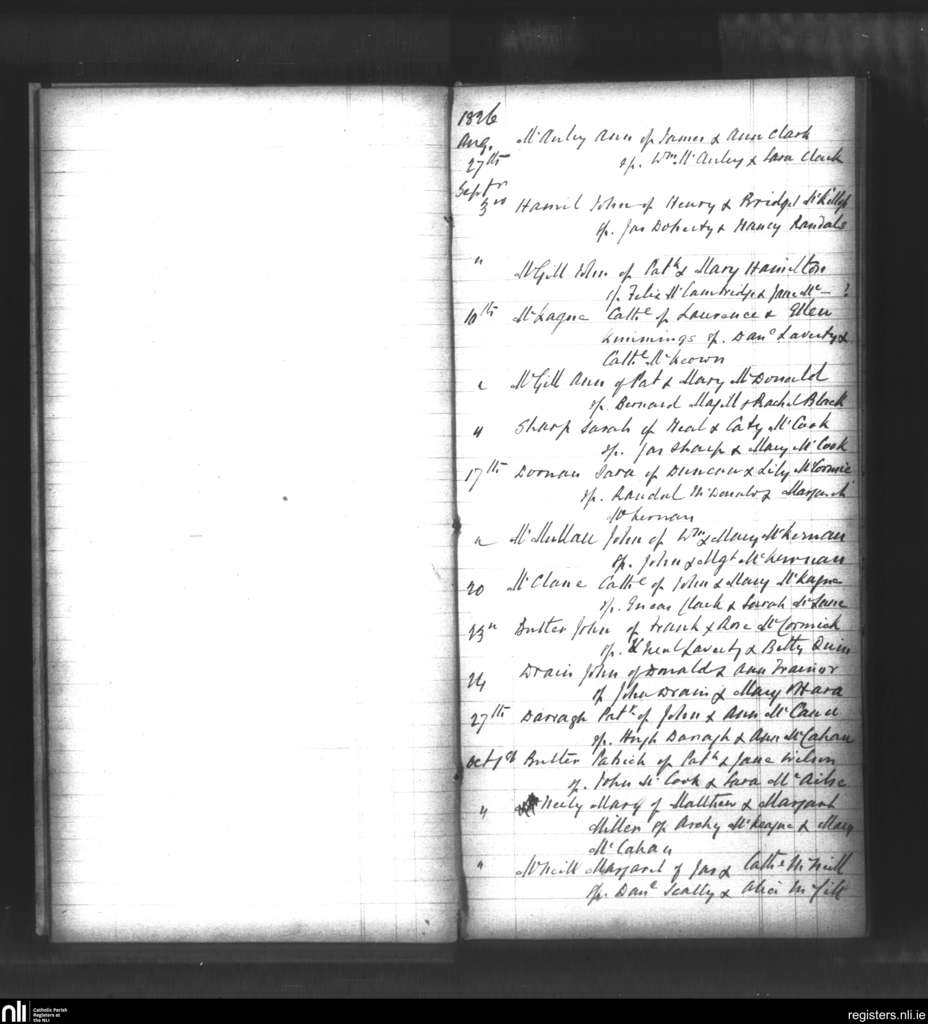 1826
Aug. 27th McAuley Ann of James & Ann Clark
sp. Wm. McAuley & Sara Clark
Septr 3rd Hamil John of Henry & Bridget McKillop
sp. Jas Doherty & Nancy Randals
" McGill John of Patk & Mary Hamilton
sp. Felix McCambridge & Jane Mc— ?
10th McKague Cathe of Laurence & Ellen
Kimmings sp. Danl Laverty &
Cathe McKeown
" McGill Ann of Pat & Mary McDonald
sp. Bernard Magill & Rachel Black
" Sharp Sarah of Neal & Caty McCook
sp. Jas Sharp & Mary McCook
17th Dornan Sara of Duncan & Lily McCormic
sp. Randal McDonald & Margaret
McKernan
" McMullan John of Wm & Mary McKernan
sp. John & Mgt McKernan
20 McClane Cathe of John & Mary McKague
sp. Eneas Clark & Sarah McLane
23rd Butter John of Frank & Rose McCormick
sp. Neal Laverty & Betty Quin
24 Drain John of Donald & Ann Trainor
sp John Drain & Mary O'Hara
27th Darragh Patk of John & Ann McCann
sp. Hugh Darragh & Ann McCahan
Oct 1st Butter Patrick of Patk & Jane Wilson
sp. John McCook & Sara
" Neely Mary of Matthew & Margaret
Miller sp Archy McKeague & Mary
McCahan
" McNeill Margaret of Jas & Cathe McNeill
sp. Danl Scally & Alice McGill
nli
Catholic Parish
Registers at
the NLI
registers.nli.ie